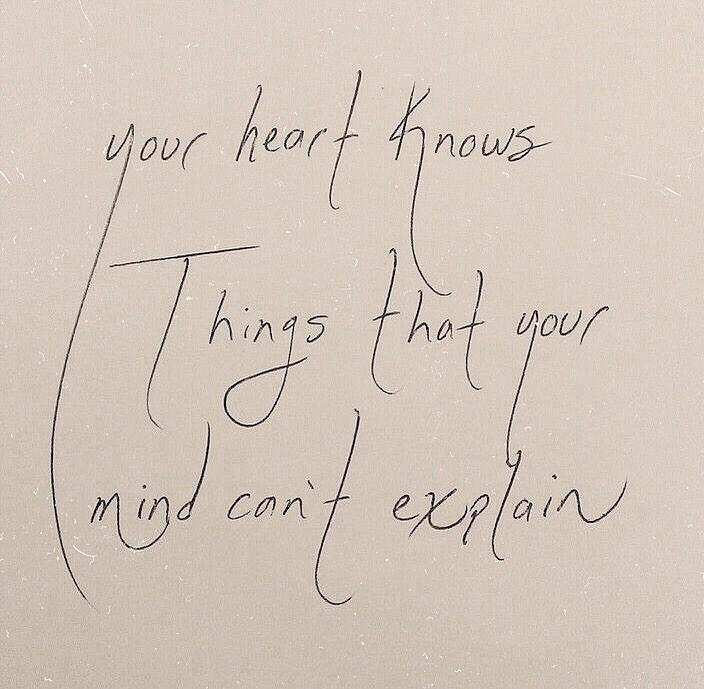 your heart knows
Things that your
mind can't explain